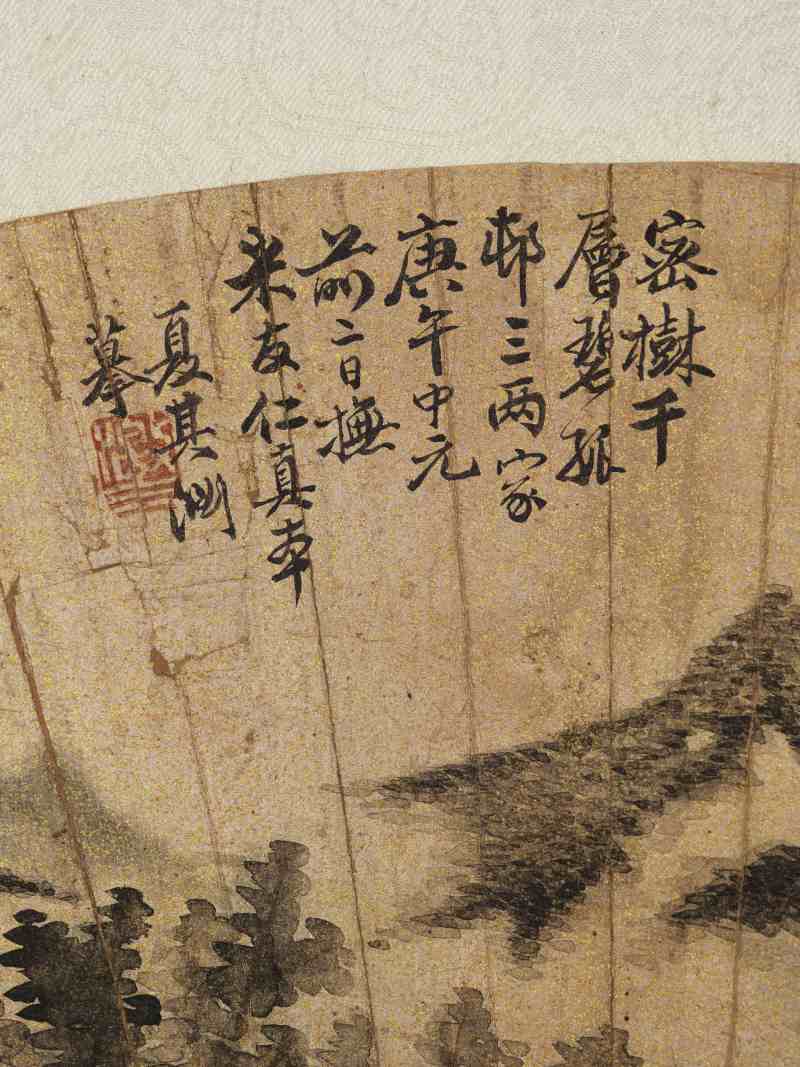 密樹千
層碧孤
邨三两家
庚午中元
前二日撫
米友仁真本
夏其
摹